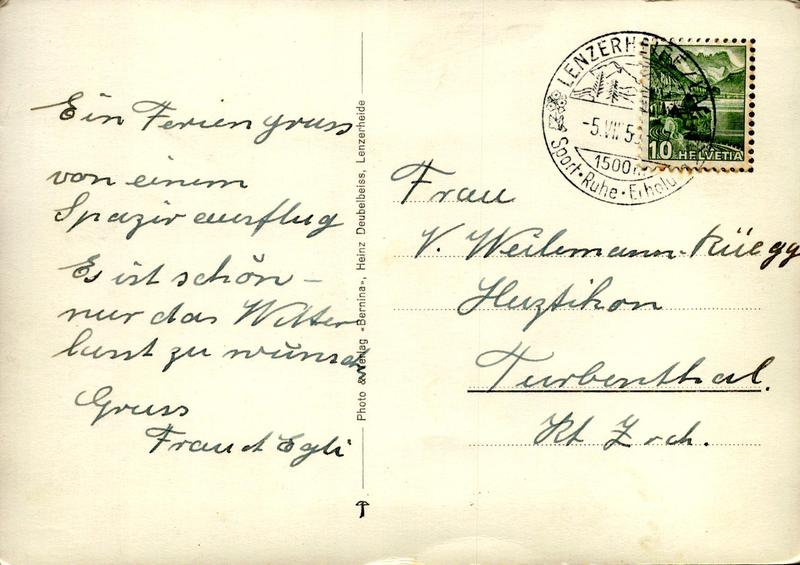 Ein Feriengruss
von einem
Spazirausflug
Es ist schön –
nur das Wetter
lasst zu wünsch
Gruss
Frau Egli
Photo & Verlag «Bernina», Heinz Deubelbeiss, Lenzerheide
LENZERHEIDE
-5.VII.5
1500 m
Sport·Ruhe·Erholu
10 HELVETIA
Frau
V. Weilemann-Rüegg
Hutzikon
Turbenthal.
Kt Zrch.